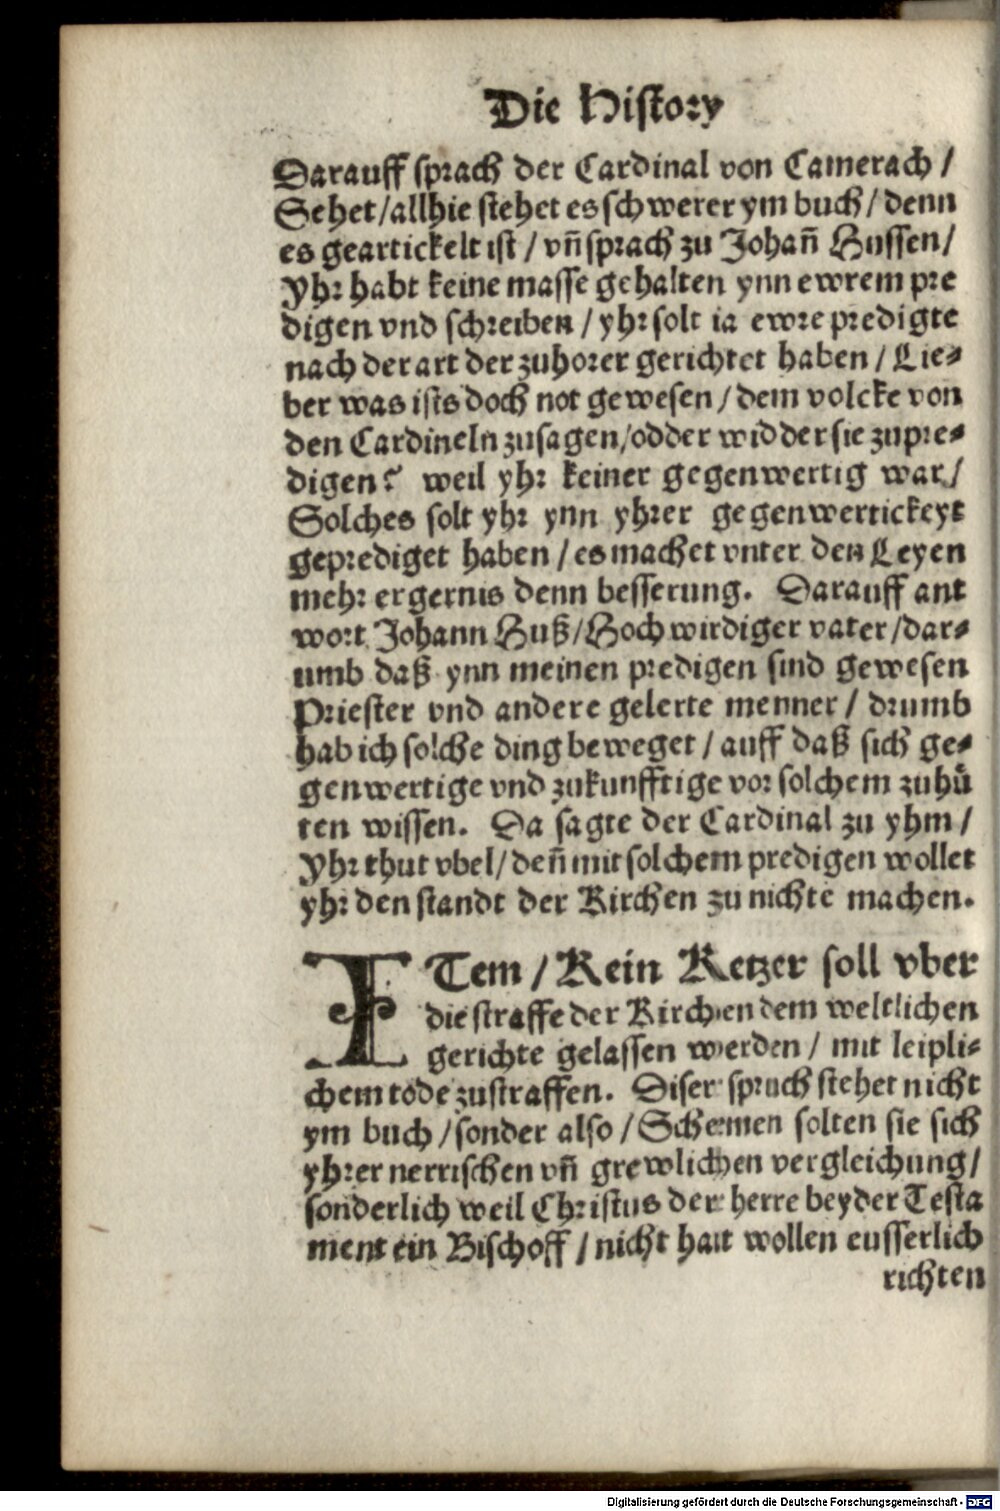 Die History
Darauff sprach der Cardinal von Camerach /
Sehet / allhie stehet es schwerer ym buch / denn
es geartickelt ist / vñ sprach zu Johañ Hussen /
Yhr habt keine masse gehalten ynn ewrem pre
digen vnd schreiben / yhr solt ia ewre predigte
nach der art der zuhorer gerichtet haben / Lie⸗
ber was ists doch not gewesen / dem volcke von
den Cardineln zusagen / odder widder sie zupre⸗
digen? weil yhr keiner gegenwertig war /
Solches solt yhr ynn yhrer gegenwertickeyt
geprediget haben / es machet vnter den Leyen
mehr ergernis denn besserung. Darauff ant
wort Johann Huß / Hochwirdiger vater / dar⸗
umb daß ynn meinen predigen sind gewesen
Priester vnd andere gelerte menner / drumb
hab ich solche ding beweget / auff daß sich ge⸗
genwertige vnd zukunfftige vor solchem zuhuͤ
ten wissen. Da sagte der Cardinal zu yhm /
Yhr thut vbel / deñ mit solchem predigen wollet
yhr den standt der Kirchen zu nichte machen.
ITem / Kein Ketzer soll vber
die straffe der Kirchen dem weltlichen
gerichte gelassen werden / mit leipli⸗
chem tode zustraffen. Diser spruch stehet nicht
ym buch / sonder also / Schemen solten sie sich
yhrer nerrischen vñ grewlichen vergleichung /
sonderlich weil Christus der herre beyder Testa
ment ein Bischoff / nicht hatt wollen eusserlich
richten
Digitalisierung gefördert durch die Deutsche Forschungsgemeinschaft - DFG